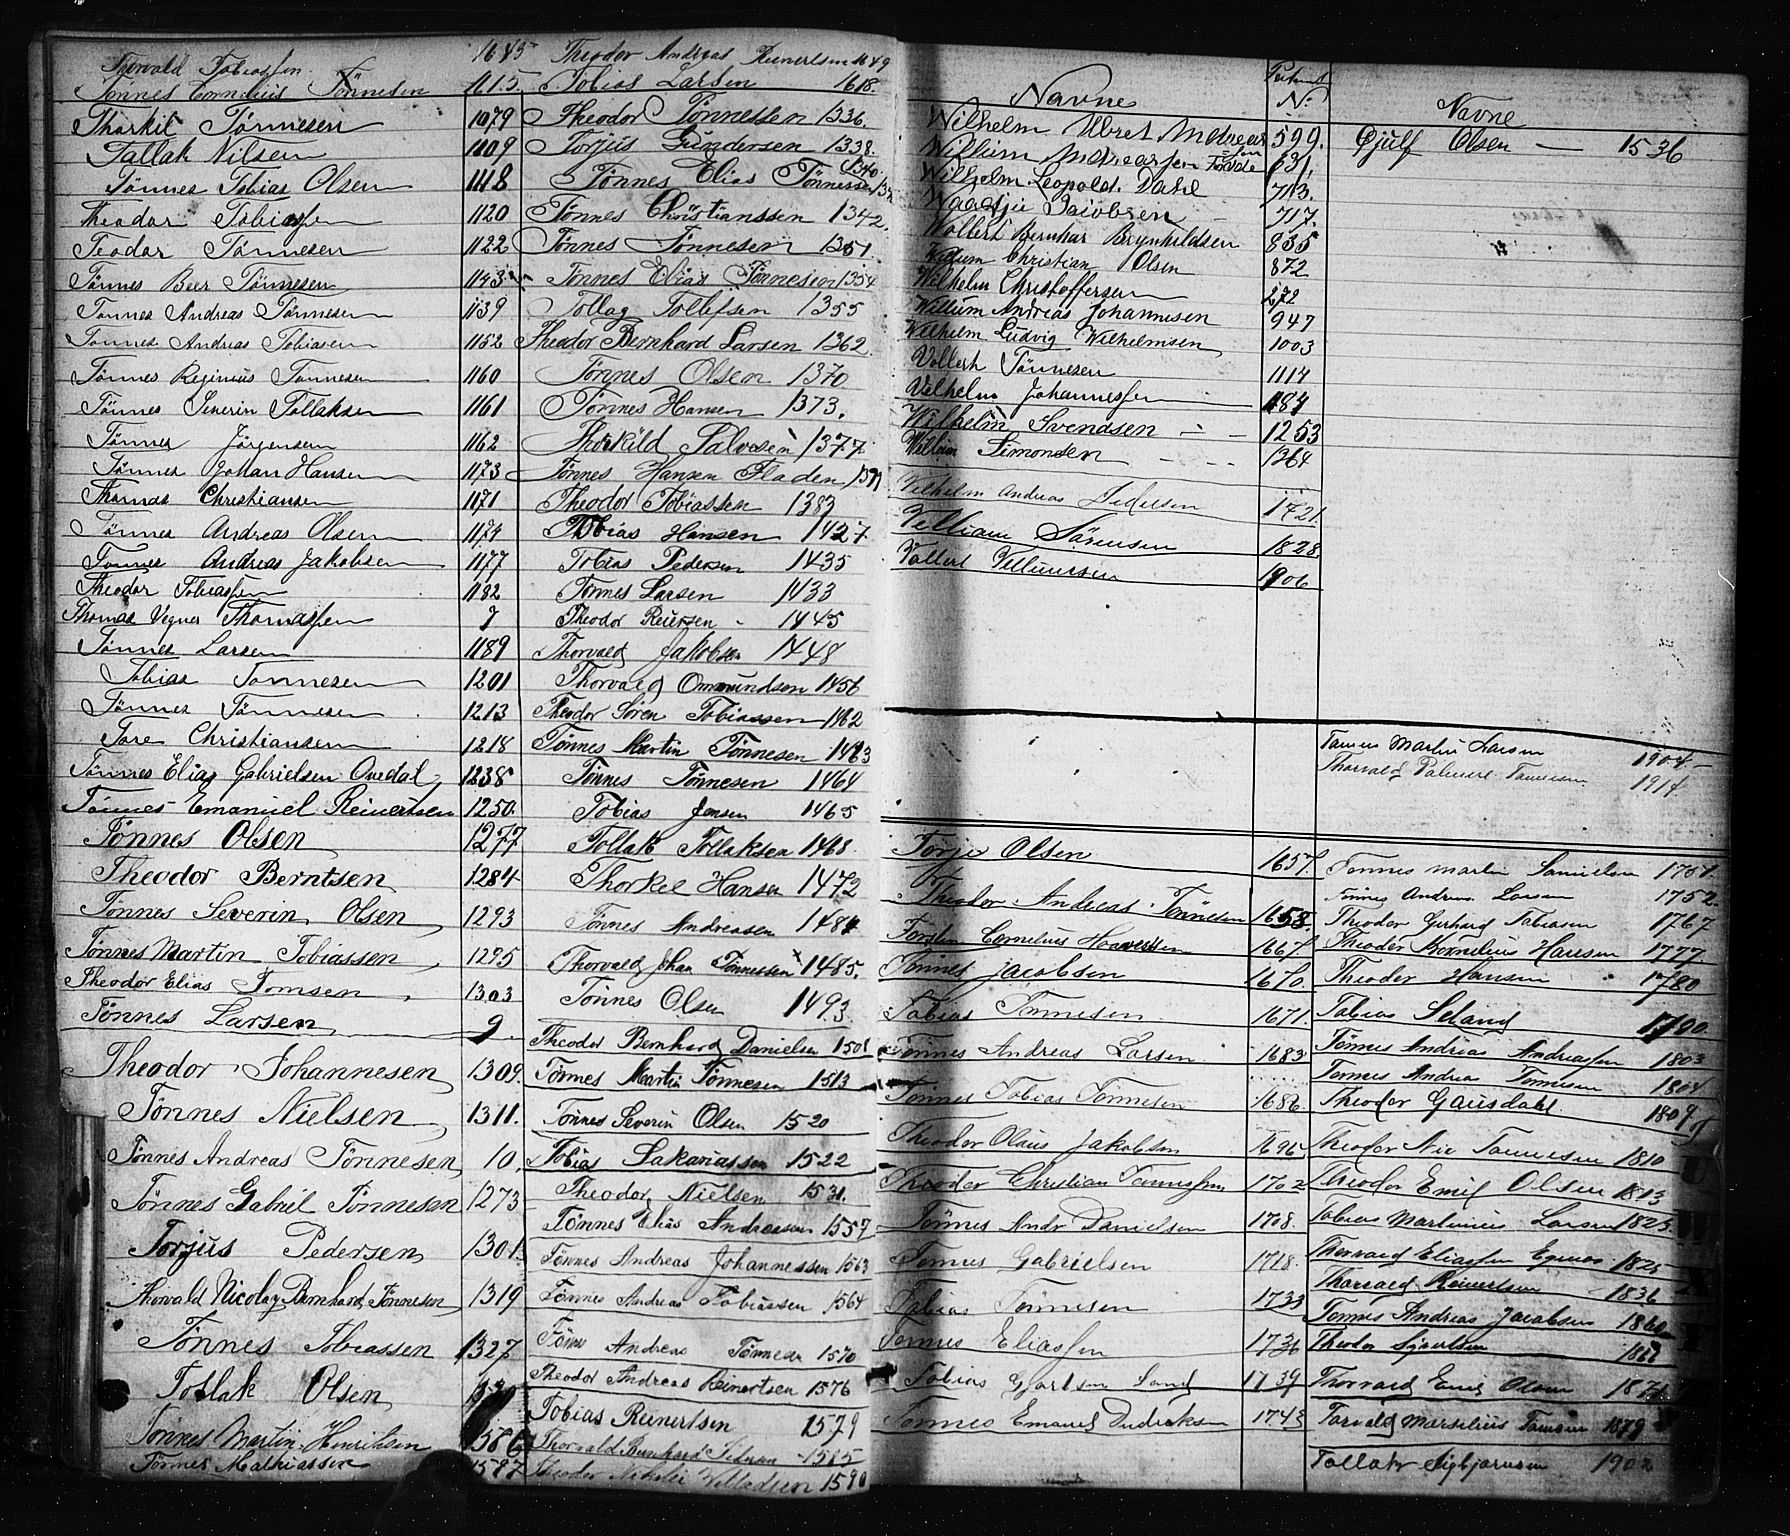 Torvald Tobiassen 1645
Tønnes Cornelius Tønnesen 1615.
Thorkil Tønnesen 1079
Tallak Nilsen 1109
Tønnes Tobias Olsen 1118
Theodor Tobiassen 1120
Teodor Tønnesen 1122
Tønnes Beer Tønnesen 1143
Tønnes Andreas Tønnesen 1139
Tønnes Andreas Tobiasen 1152
Tønnes Reginius Tønnesen 1160
Tønnes Severin Tollaksen 1161
Tønnes Jørgensen 1162
Tønnes Johan Hansen 1173
Thomas Christiansen 1171
Tønnes Andreas Olsen 1174
Tønnes Andreas Jakobsen 1177
Theodor Tobiassen 1182
Thomas Vegner Thomassen 7
Tønnes Larsen 1189
Tobias Tønnesen 1201
Tønnes Tønnesen 1213
Tore Christiansen 1218
Tønnes Elias Gabrielsen Ovedal 1238
Tønnes Emanuel Reinertsen 1250.
Tønnes Olsen 1277
Theodor Berntsen 1284
Tønnes Severin Olsen 1293
Tønnes Martin Tobiassen 1295
Theodor Elias Tomsen 1303
Tønnes Larsen 9.
Theodor Johannesen 1309.
Tønnes Nielsen 1311.
Tønnes Andreas Tønnesen 10.
Tønnes Gabriel Tønnesen 1273
Torjus Pedersen 1301.
Thorvald Nicolay Bernhard Tønnesen 1319
Tønnes Tobiassen 1327
Tollak Olsen
Tønnes Martin Henriksen 1586
Tønnes Mathiassen 1587
Theodor Andreas Reinertsen 1649
Tobias Larsen 1618.
Theodor Tønnessen 1336.
Torjus Gundersen 1338.
Tønnes Elias Tønnessen 1340
Tønnes Christianssen 1342.
Tønnes Tønnesen 1351.
Tønnes Elias Tønnesen 1354
Tollag Tollefsen 1355
Theodor Bernhard Larsen 1362.
Tønnes Olsen 1370
Tønnes Hansen 1373.
Thorkild Salvesen 1377.
Tønnes Hansen Fladen
Theodor Tobiassen 1383
Tobias Hansen 1427
Tobias Pedersen 1435
Tønnes Larsen 1433
Theodor Reiersen 1445
Thorvald Jakobsen 1448
Thorvald Omundsen 1456
Theodor Søren Tobiassen 1462
Tønnes Martin Tønnesen 1463
Tønnes Tønnesen 1464
Tobias Jensen 1465
Tollak Tollaksen 1468.
Thorkel Hansen 1472
Tønnes Andreasen 1484
Thorvald Johan Tønnessen 1485.
Tønnes Olsen 1493
Theodor Bernhard Danielsen 1501
Tønnes Martin Tønnesen 1513
Tønnes Severin Olsen 1520
Tobias Sakariassen 1522
Theodor Nielsen 1531.
Tønnes Elias Andreassen 1557
Tønnes Andreas Johannessen 1563
Tønnes Andreas Tobiassen 1564
Tønnes Andreas Tønnesen 1570
Theodor Andreas Reinertsen 1576
Tobias Reinertsen 1579
Thorvald Bernhard 1585
Theodor 1590
Navne Patent No
Wilhelm Andreas 599.
Willum Andreassen 631.
Wilhelm Leopold Dahl 713.
Jacobsen 717.
Wollert Bernhar Brynhildsen 835
Willum Christian Olsen 872
Wilhelm Christoffersen 272
Willum Andreas Johannesen 947
Wilhelm Ludvig Wilhelmsen 1003
Vollert Tønnesen 1114
Vilhelm Johannessen 1184
Wilhelm Svendsen 1253
William Simonsen 1364
Vilhelm Andreas Pedersen 1421.
Villiam Sørensen 1828.
Vollert Villumsen 1906
Torje Olsen 1657.
Theodor Andreas Tønnesen 1658.
Torsten Cornelius 1667.
Tønnes Jacobsen 1670.
Tobias Tønnesen 1671.
Tønnes Andreas Larsen 1683
Tønnes Tobias Tønnesen 1686.
Theodor Olaus Jakobsen 1696
Theodor Christian Tønnessen 1702
Tønnes Andr Danielsen 1708.
Tønnes Gabrielsen 1718.
Tobias Tønnesen 1733
Tønnes Eliassen 1736
Tobias Gjertsen Sand 1739
Tønnes Emanuel Didriksen 1743
Navne
Øjulf Olsen — 1536
Tønnes Martin Larsen 1904.
Thorvald Tønnesen 1914
Tønnes Martin Samuelsen 1751.
Tønnes Andreas Larsen 1752.
Theodor Gerhard Tobiasen 1767
Theodor Kornelius Hansen 1777
Theodor Hansen 1780
Tobias Seland 1790.
Tønnes Andreas Andreassen 1803
Tønnes Andreas Tønnesen 1804
Theodor Gausdahl. 1809
Theodor Nic Tønnesen 1810
Theodor Emil Olsen 1813
Tobias Martinius Larsen 1823.
Thorvald Eliassen Egenes 1825
Thorvald Reinertsen 1836
Tønnes Andreas Jacobsen 1860
Theodor Gjertsen
Thorvald Emil Olsen 1871.
Torvald Marselius Tønnesen 1879
Tollak Sigbjørnsen 1902
U
W